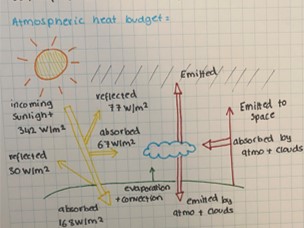 Atmospheric heat budget:
Emitted
incoming
sunlight
342 W/m²
reflected
77 W/m²
absorbed
67 W/m²
reflected
30 W/m²
absorbed
168 W/m²
evaporation
+ convection
emitted by
atmo + clouds
Emitted to
space
absorbed by
atmo + clouds